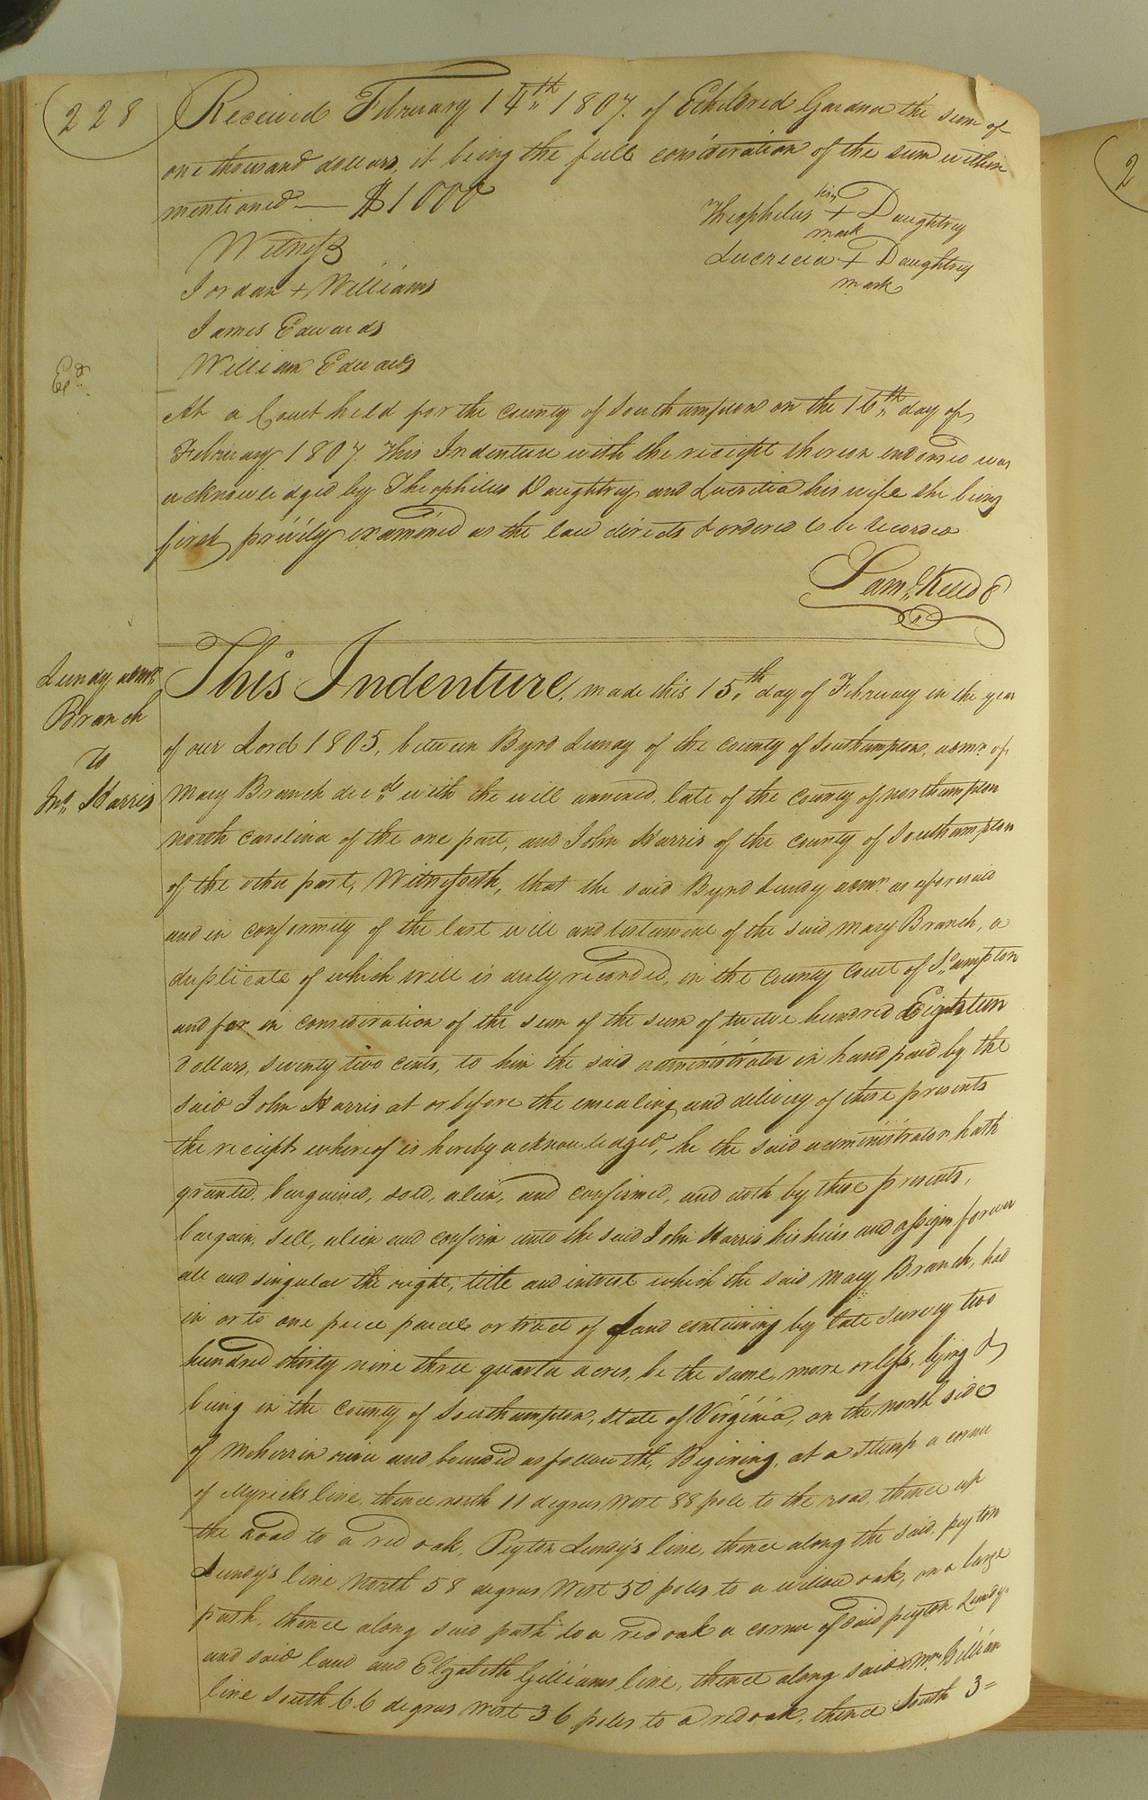 228
Received February 14th 1807. of Etheldred Gardner the sum of
one thousand dollars, it being the full consideration of the sum within
mentioned — $1000
his
Theophilus + Daughtrey
mark
Lucrecia + Daughtrey
mark
Witness
Jordan + Williams
James Edwards
William Edwards
At a Court held for the county of Southampton on the 16th day of
February 1807. This Indenture with the receipt thereon endorsed was
acknowledged by Theophilus Daughtrey and Lucretia his wife she being
first privily examined as the law directs & ordered to be recorded
Saml. Kello
Lundy admr.
Branch
to
Jno. Harris
This Indenture, made this 15th day of February in the year
of our Lord 1805, between Byrd Lundy of the county of Southampton, admr. of
Mary Branch decd. with the will annexed, late of the county of northampton
north Carolina of the one part, and John Harris of the county of Southampton
of the other part, Witnesseth, that the said Byrd Lundy admr. as aforesaid
and in conformity of the last will and testament of the said Mary Branch, a
duplicate of which will is duly recorded, in the county court of So.ampton
and for in consideration of the sum of the sum of twelve hundred Eighteen
dollars, seventy two cents, to him the said administrator in hand paid by the
said John Harris at or before the ensealing and delivery of these presents
the receipt whereof is hereby acknowledged, he the said administrator hath
granted, bargained, sold, alien, and confirmed, and doth by these presents,
bargain, sell, alien and confirm unto the said John Harris his heirs and assigns forever
all and singular the right, title and interest which the said Mary Branch, had
in or to one peice parcel or tract of Land containing by late survey two
hundred thirty nine three quarter acres, be the same, more or less, lying &
being in the county of Southampton, State of Virginia, on the north side
of Meherrin river and bounded as followeth, Begining, at a Stump a corner
of Myricks line, thence north 11 degrees West 88 pole to the road, thence up
the road to a red oak, Peyton Lundy's line, thence along the said, peyton
Lundy's line North 58 degrees West 50 poles to a willow oak, on a large
path, thence along said path to a red oak a corner of said peyton Lundy
and said land and Elizabeth Gilliams line, thence along said Mrs. Gilliam
line South 66 degrees West 36 poles to a red oak, thence South 3=